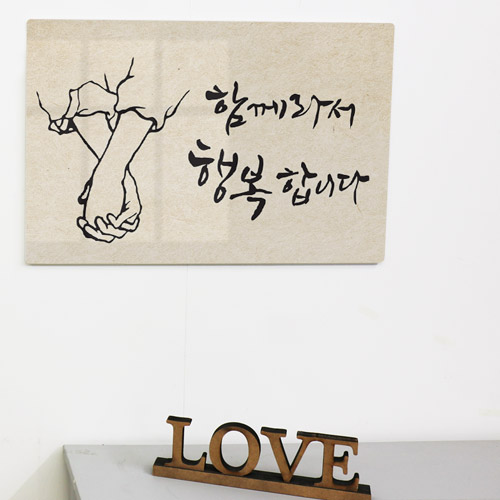 함께라서
행복 합니다
LOVE